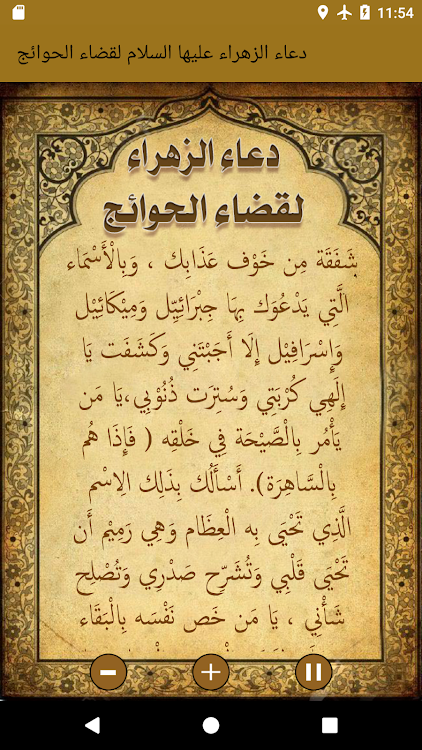 11:54
دعاء الزهراء عليها السلام لقضاء الحوائج
دعاء الزهراء
لقضاء الحوائج
شَفَقَة مِن خَوْف عَذَابِك ، وَبِالْأَسْمَاء
الَّتِي يَدْعُوَك بِهَا جِبْرَائِيِل وَمِيْكَائِيْل
وَإِسْرَافِيْل إِلَا أَجَبْتَنِي وَكَشَفَت يَا
إِلَهِي كُرْبَتِي وَسُتِرَت ذُنُوْبِي،يَا مَن
يَأْمُر بِالْصَّيْحَة فِي خَلْقِه ( فَإِذَا هُم
بِالْسَّاهِرَة). أَسْأَلُك بِذَلِك الِاسْم
الَّذِي تَحْيَى بِه الْعِظَام وَهِي رَمِيْم أَن
تَحْيَى قَلْبِي وَتُشَرِّح صَدْرِي وَتُصْلِح
شَأْنِي ، يَا مَن خَص نَفْسَه بِالْبَقَاء